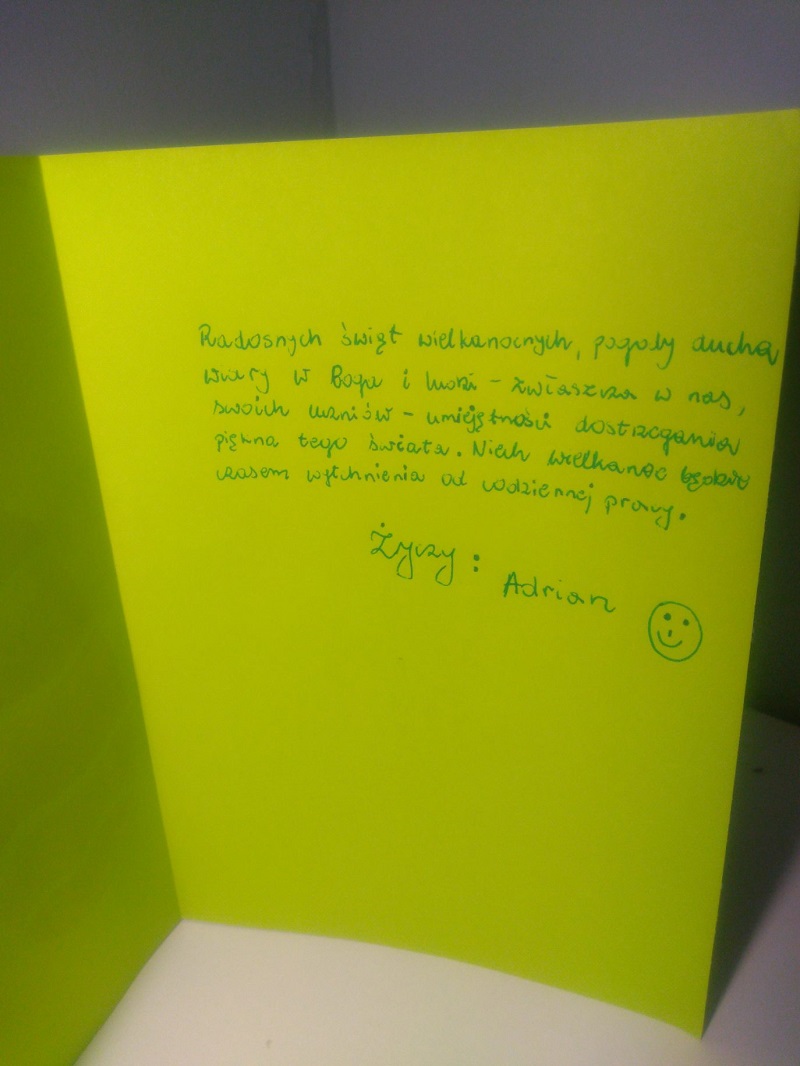 Radosnych świąt wielkanocnych, pogody ducha
wiary w Boga i ludzi - zwłaszcza w nas,
swoich uczniów - umiejętności dostrzegania
piękna tego świata. Niech wielkanoc będzie
czasem wytchnienia od codziennej pracy.
Życzy :
Adrian